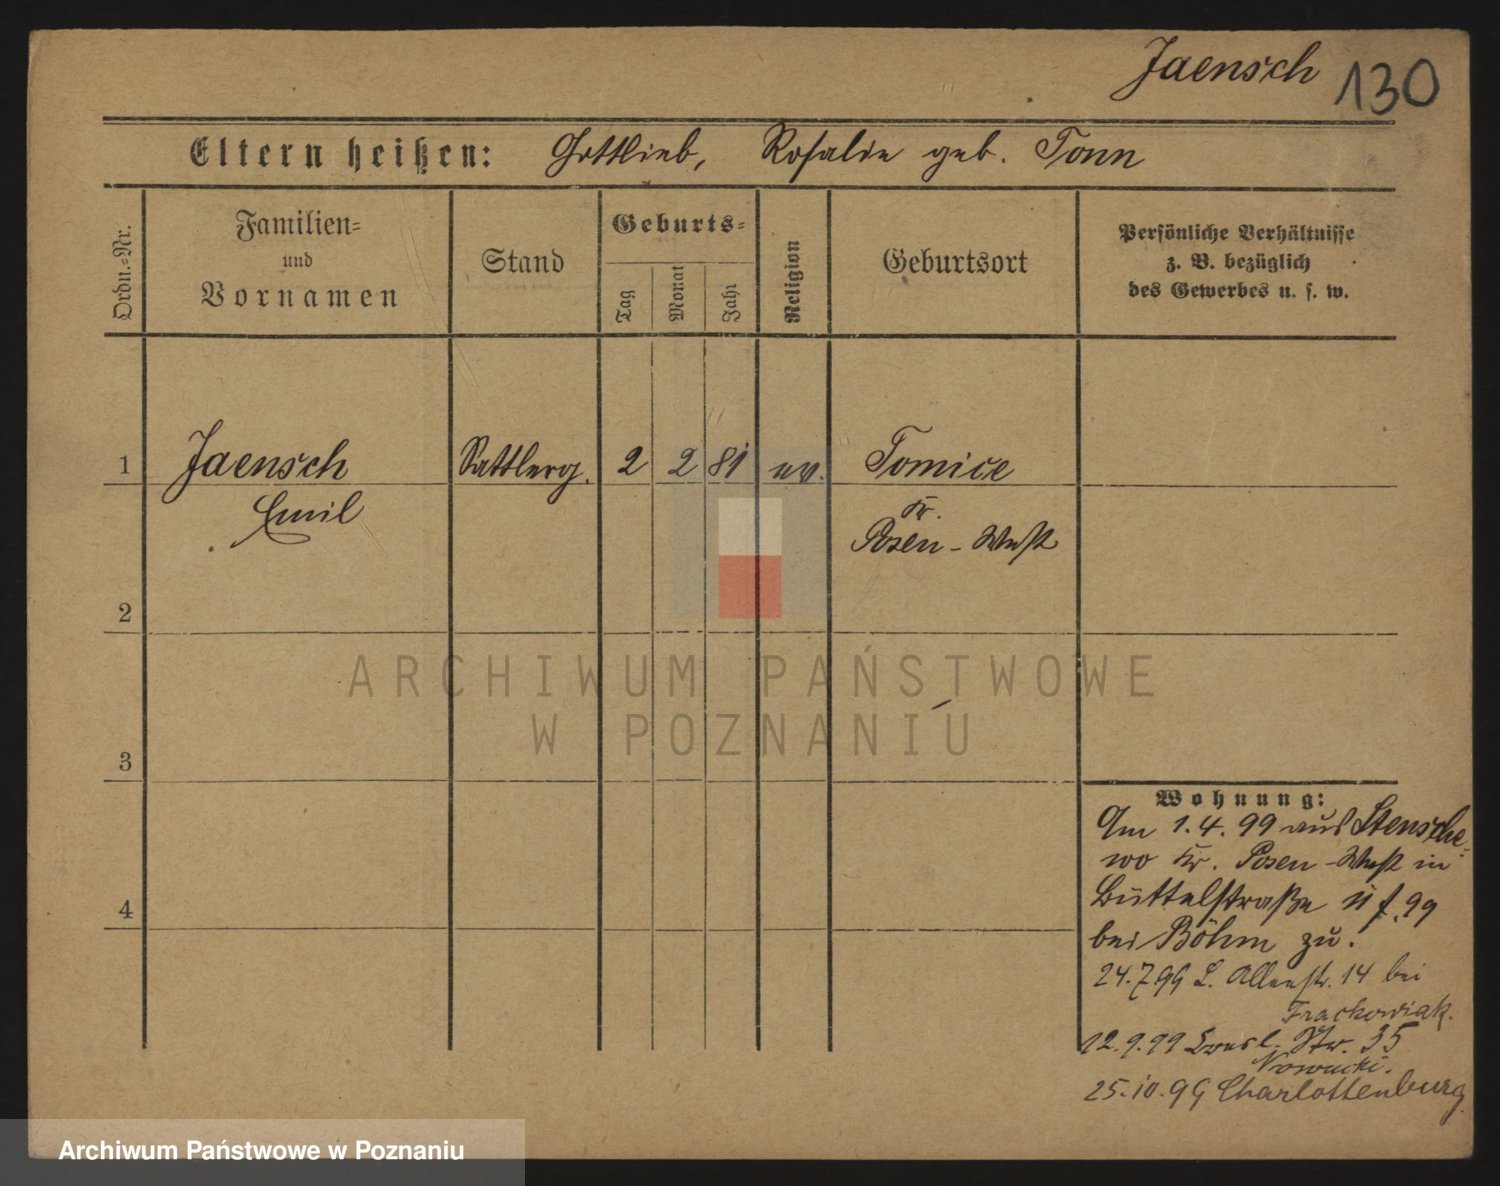 Jaensch 130
Eltern heißen: Gottlieb, Rosalie geb. Tonn
Ordn.-Nr.
Familien-
und
Vornamen
Stand
Geburts-
Tag
Monat
Jahr
Religion
Geburtsort
Persönliche Verhältnisse
z. B. bezüglich
des Gewerbes u. s. w.
1 Jaensch Sattlerg. 2 2 81 ev. Tomice
Emil Kr.
Posen-West
2
3
4
ARCHIWUM PAŃSTWOWE
W POZNANIU
Wohnung:
Am 1.4.99 aus Stensche-
wo Kr. Posen-West in
Büttelstraße 11 99
bei Böhm zu.
24.7.99 L. Alleestr. 14 bei
Frackowiak.
12.9.99 Bresl. Str. 35
Nowacki.
25.10.99 Charlottenburg
Archiwum Państwowe w Poznaniu